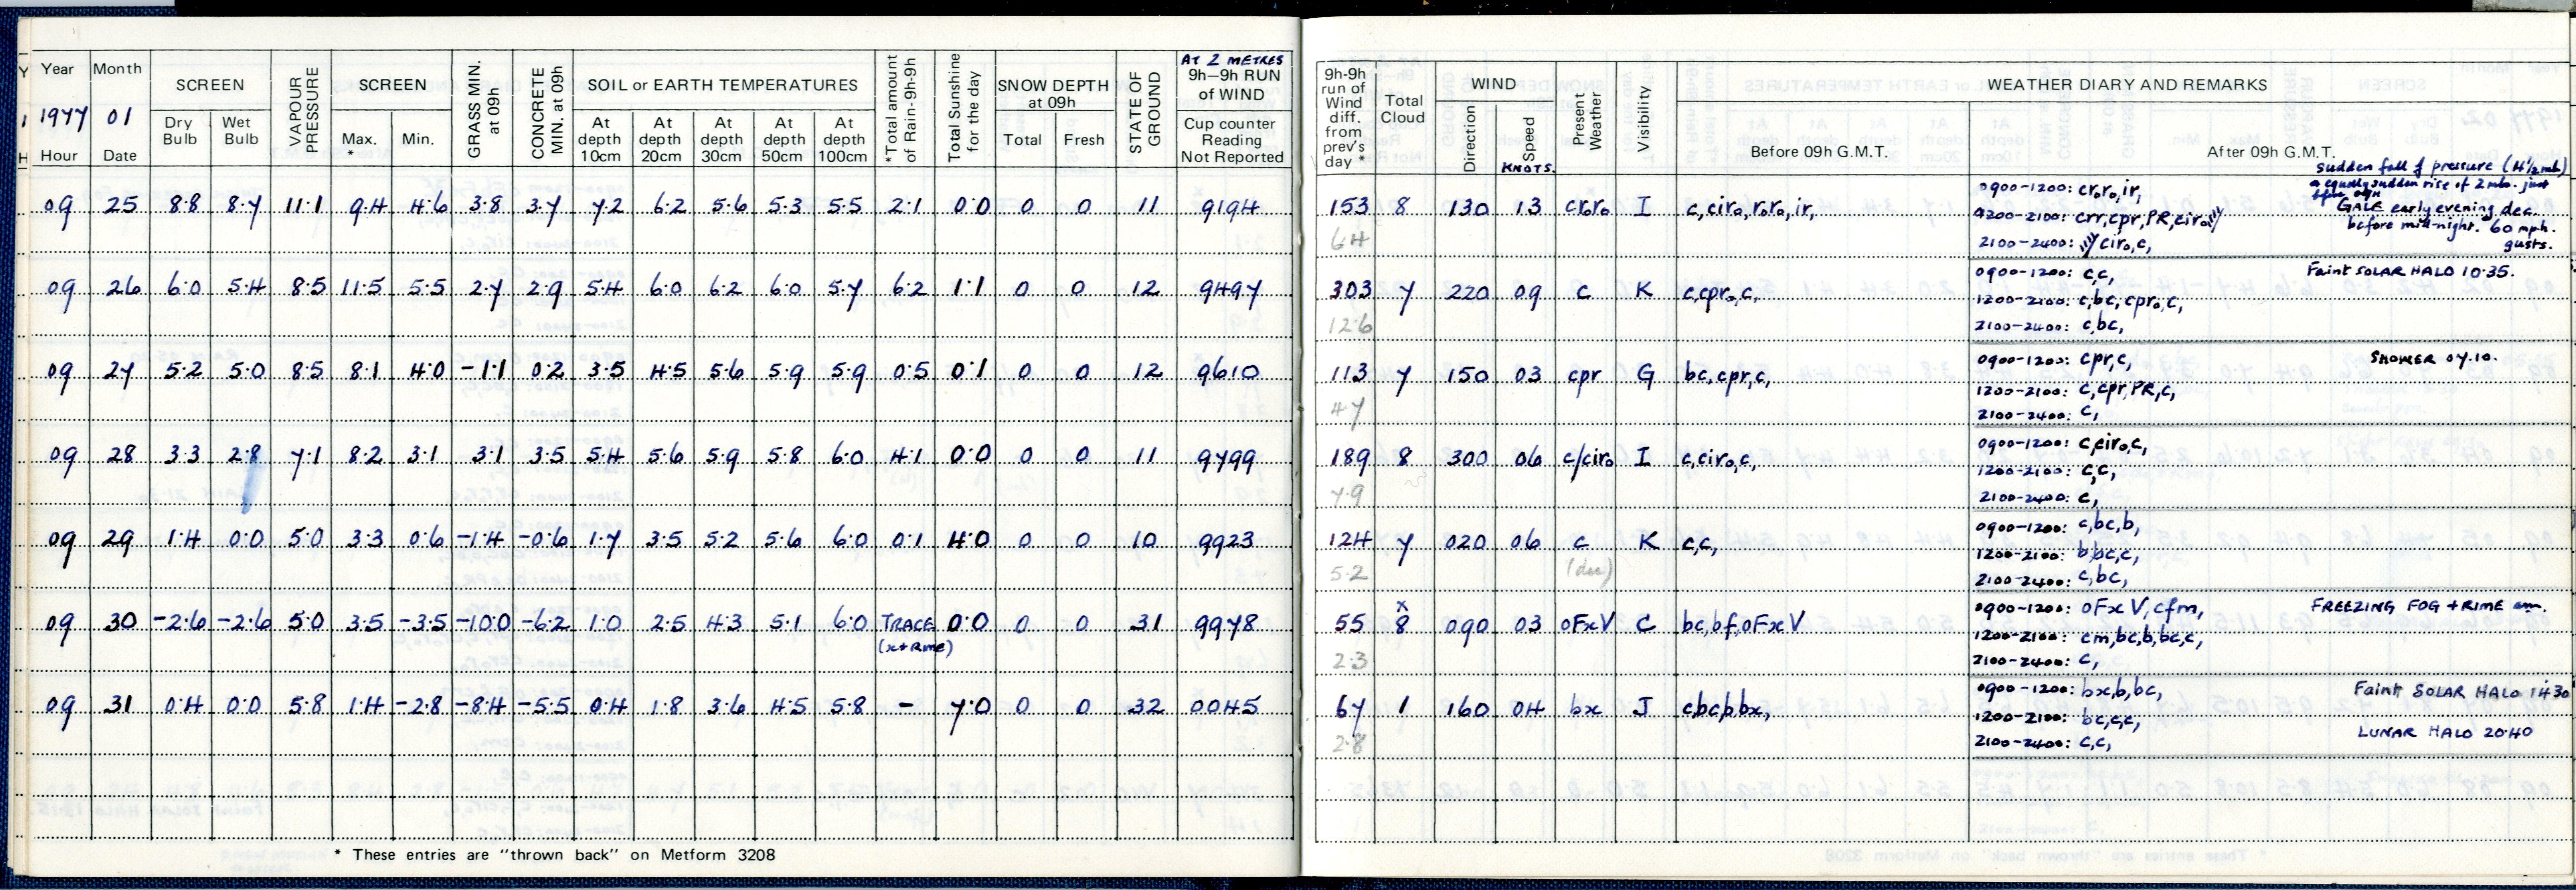 AT 2 METRES
Year Month SCREEN VAPOUR PRESSURE SCREEN GRASS MIN. at 09h CONCRETE MIN. at 09h SOIL or EARTH TEMPERATURES *Total amount of Rain-9h-9h Total Sunshine for the day SNOW DEPTH at 09h STATE OF GROUND 9h—9h RUN of WIND
1977 01 Dry Bulb Wet Bulb Max. * Min. At depth 10cm At depth 20cm At depth 30cm At depth 50cm At depth 100cm Total Fresh Cup counter Reading Not Reported
Hour Date
09 25 8.8 8.7 11.1 9.4 4.6 3.8 3.7 7.2 6.2 5.6 5.3 5.5 2.1 0.0 0 0 11 9194
09 26 6.0 5.4 8.5 11.5 5.5 2.7 2.9 5.4 6.0 6.2 6.0 5.7 6.2 1.1 0 0 12 9497
09 27 5.2 5.0 8.5 8.1 4.0 -1.1 0.2 3.5 4.5 5.6 5.9 5.9 0.5 0.1 0 0 12 9610
09 28 3.3 2.8 7.1 8.2 3.1 3.1 3.5 5.4 5.6 5.9 5.8 6.0 4.1 0.0 0 0 11 9799
09 29 1.4 0.0 5.0 3.3 0.6 -1.4 -0.6 1.7 3.5 5.2 5.6 6.0 0.1 4.0 0 0 10 9923
09 30 -2.6 -2.6 5.0 3.5 -3.5 -10.0 -6.2 1.0 2.5 4.3 5.1 6.0 TRACE 0.0 0 0 31 9978
(x+Rime)
09 31 0.4 0.0 5.8 1.4 -2.8 -8.4 -5.5 0.4 1.8 3.6 4.5 5.8 - 7.0 0 0 32 0045
* These entries are "thrown back" on Metform 3208
9h-9h run of Wind diff. from prev's day * Total Cloud WIND Present Weather Visibility WEATHER DIARY AND REMARKS
Direction Speed KNOTS. Before 09h G.M.T. After 09h G.M.T.
sudden fall of pressure (4½mb)
a equally sudden rise of 2 mb. just
153 8 130 13 cr₀r₀ I c,cir₀,r₀r₀,ir, 0900-1200: cr₀r₀,ir,
64 1200-2100: crr,cpr,PR,cir₀ GALE early evening dec.
before mid-night. 60 mph.
2100-2400: cir₀,c, gusts.
303 7 220 09 c K c,cpr₀,c, 0900-1200: c,c, Faint SOLAR HALO 10.35.
12.6 1200-2100: c,bc,cpr₀,c,
2100-2400: c,bc,
113 7 150 03 cpr G bc,cpr,c, 0900-1200: cpr,c, SHOWER 07.10.
47 1200-2100: c,cpr,PR,c,
2100-2400: c,
189 8 300 06 c/cir₀ I c,cir₀,c, 0900-1200: c,cir₀,c,
7.9 1200-2100: c,c,
2100-2400: c,
124 7 020 06 c K c,c, 0900-1200: c,bc,b,
5.2 1200-2100: b,bc,c,
2100-2400: c,bc,
55 x 8 090 03 oFxV C bc,bf,oFxV 0900-1200: oFxV,cfm, FREEZING FOG + RIME am.
2.3 1200-2100: cm,bc,b,bc,c,
2100-2400: c,
67 1 160 04 bx J c,bc,b,bx, 0900-1200: bx,b,bc, Faint SOLAR HALO 1430
2.8 1200-2100: bc,c,c, LUNAR HALO 20.40
2100-2400: c,c,